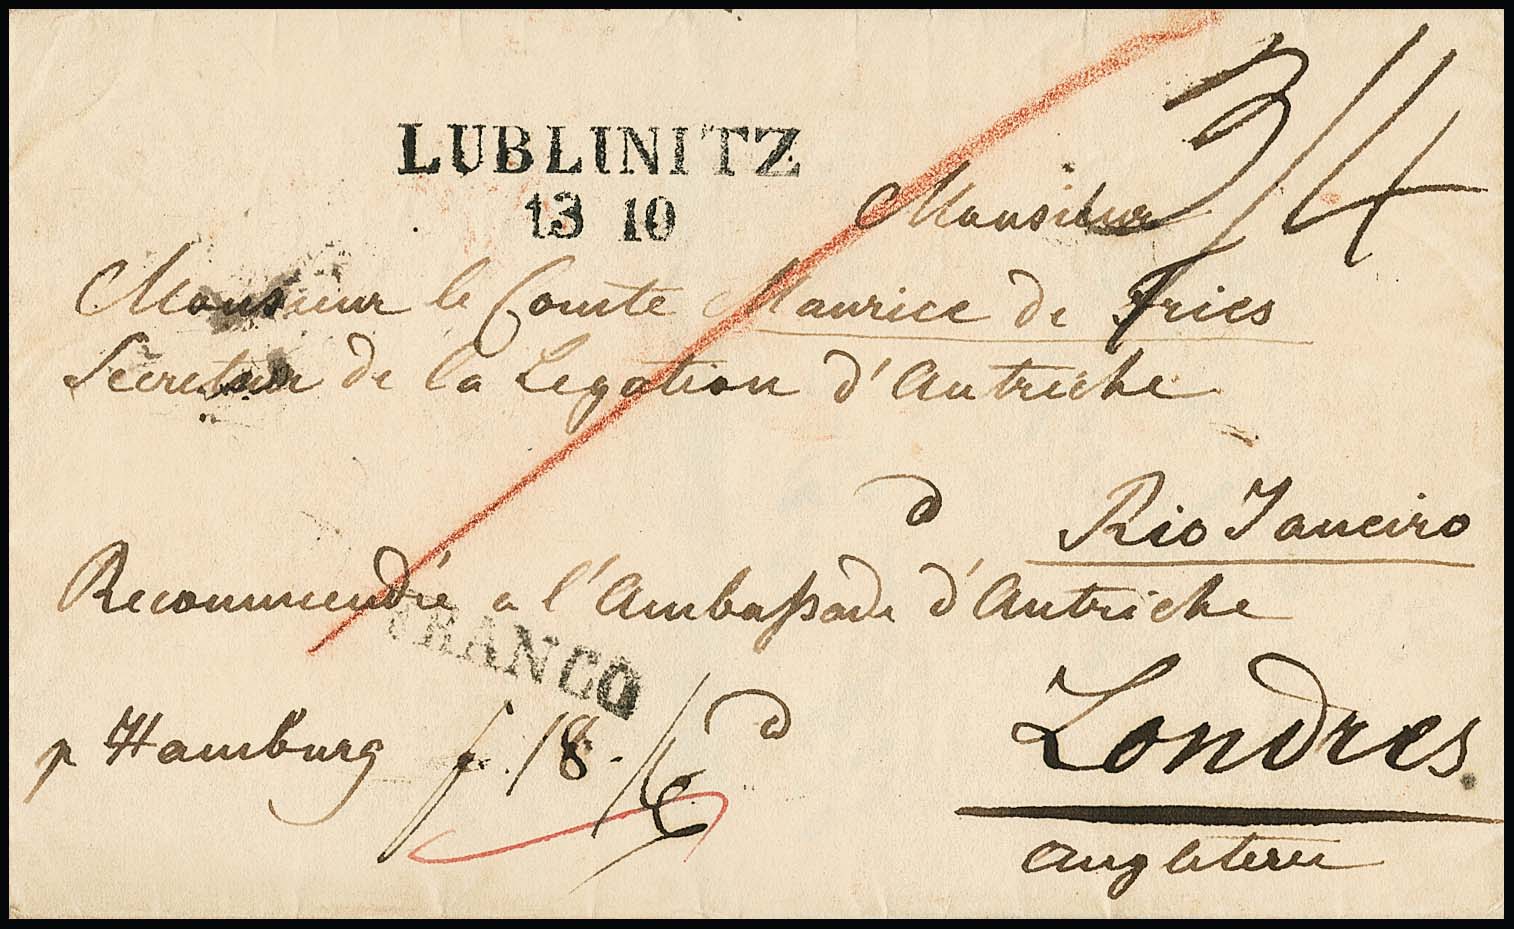 LUBLINITZ
13 10
3/4
Monsieur
Monsieur le Comte Maurice de Fries
Secretair de la Legation d'Autriche
à Rio Janeiro
Recommendré a l'Ambassade d'Autriche
FRANCO
p Hamburg f 18. / 6 à Londres.
Angleterre